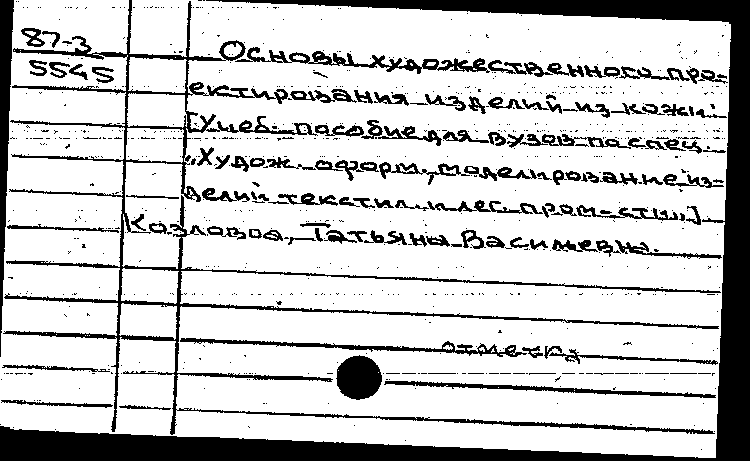 87-3
5545
Основы художественного про-
ектирования изделий из кожи:
[Учеб. пособие для вузов по спец.
„Худож. оформ., моделирование из-
делий текстил. и лег. пром-сти„]
Козлова, Татьяна Васильевна.
отметка